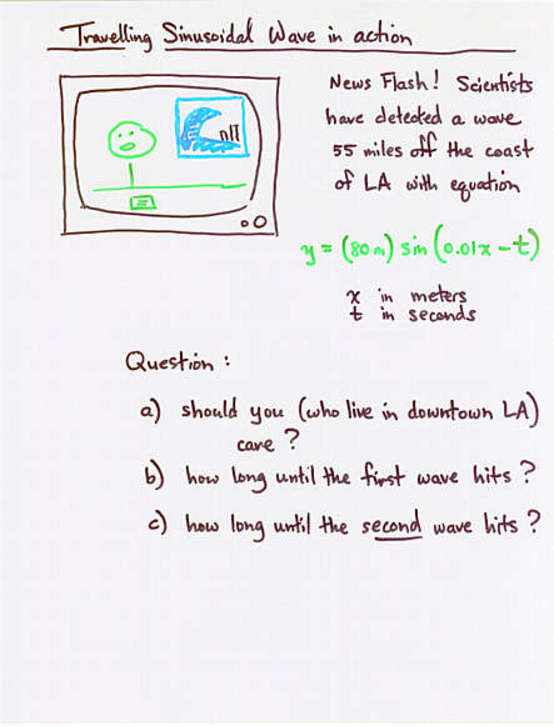 Travelling Sinusoidal Wave in action
News Flash! Scientists
have detected a wave
55 miles off the coast
of LA with equation
y = (80 m) sin (0.01x - t)
x in meters
t in seconds
Question :
a) should you (who live in downtown LA)
care ?
b) how long until the first wave hits ?
c) how long until the second wave hits ?